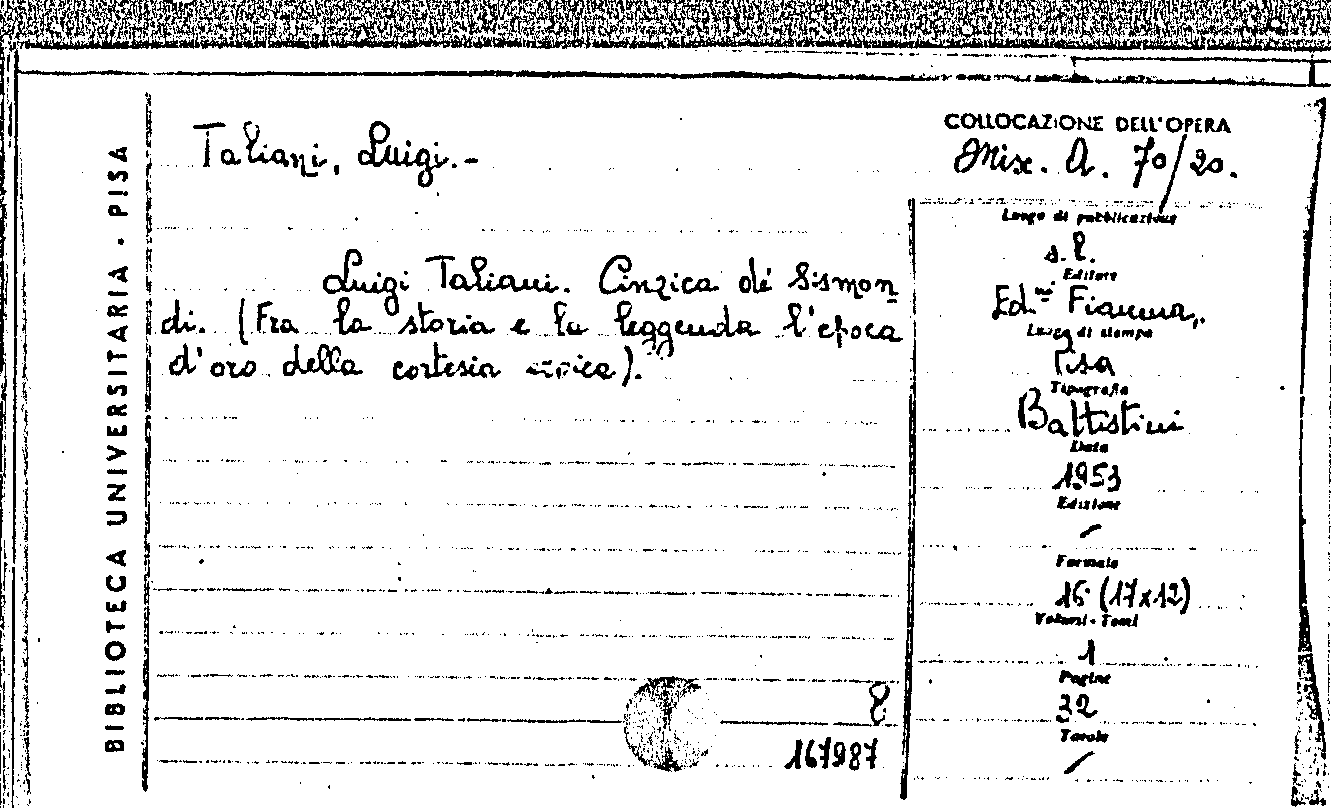 BIBLIOTECA UNIVERSITARIA - PISA
Taliani, Luigi.-
Luigi Taliani. Cinzica dé Sismon
di. (Fra la storia e la leggenda l'epoca
d'oro della cortesia
8
167987
COLLOCAZIONE DELL'OPERA
Misc. A. 70/20.
Luogo di pubblicazione
s.l.
Editore
Ed.ni Fiamma,
Luogo di stampa
Pisa
Tipografia
Battistini
Data
1953
Edizione
/
Formato
16 (17x12)
Volumi - Tomi
1
Pagine
32
Tavole
/